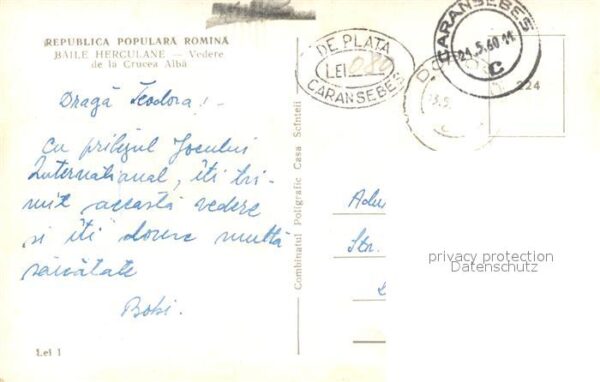 REPUBLICA POPULARĂ ROMÎNĂ
BĂILE HERCULANE — Vedere
de la Crucea Albă
Dragă Teodora!
Cu prilejul Jocului
Internațional, îți tri-
mit această vedere
și îți doresc multă
sănătate
Bobi.
Lei 1
Combinatul Poligrafic Casa Scînteii
DE PLATA
LEI 0.80
CARANSEBEȘ
CARANSEBEȘ
21.5.60
C
224
Str.
privacy protection
Datenschutz